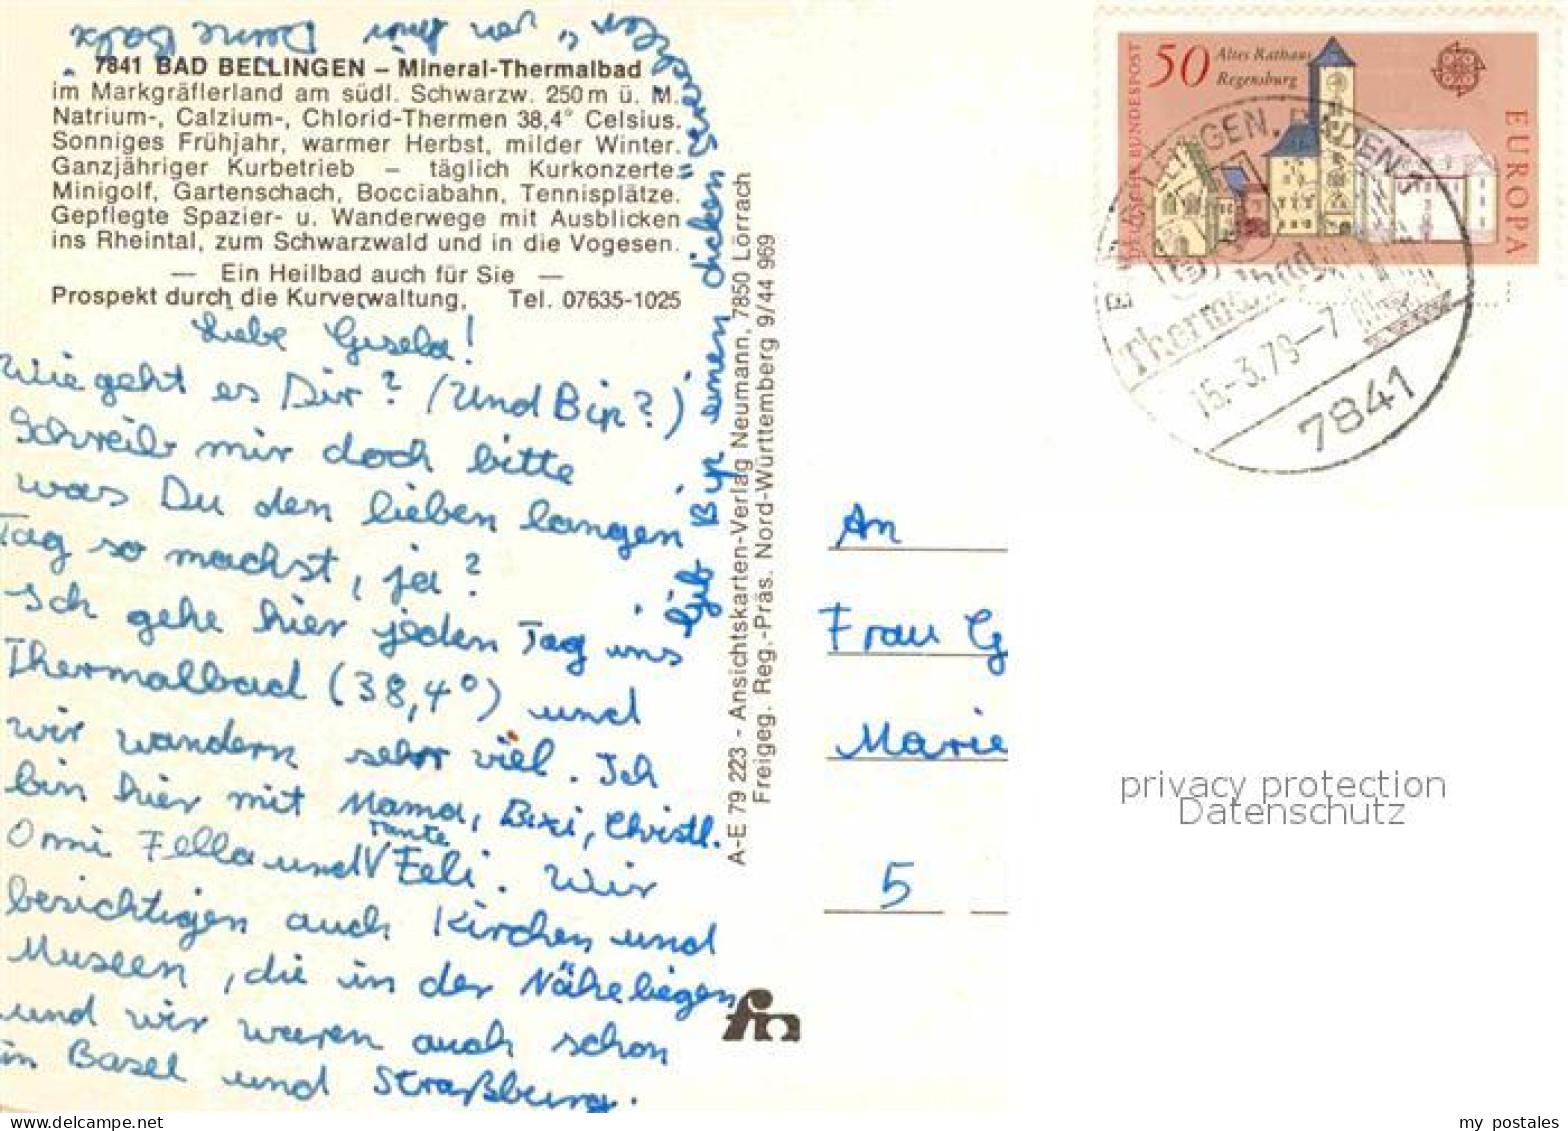 7841 BAD BELLINGEN – Mineral-Thermalbad
im Markgräflerland am südl. Schwarzw. 250 m ü. M.
Natrium-, Calzium-, Chlorid-Thermen 38,4° Celsius.
Sonniges Frühjahr, warmer Herbst, milder Winter.
Ganzjähriger Kurbetrieb – täglich Kurkonzerte
Minigolf, Gartenschach, Bocciabahn, Tennisplätze.
Gepflegte Spazier- u. Wanderwege mit Ausblicken
ins Rheintal, zum Schwarzwald und in die Vogesen.
— Ein Heilbad auch für Sie —
Prospekt durch die Kurverwaltung, Tel. 07635-1025
Liebe Gisela!
Wie geht es Dir? (Und Bip?)
Schreib mir doch bitte
was Du den lieben langen
Tag so machst, ja?
Ich gehe hier jeden Tag ins
Thermalbad (38,4°) und
wir wandern sehr viel. Ich
bin hier mit Mama, Bixi, Christl.
Omi Fella und Tante Feli. Wir
besichtigen auch Kirchen und
Museen, die in der Nähe liegen
und wir waren auch schon
in Basel und Straßburg.
Gib Bip einen dicken
von mir Deine
A-E 79 223 - Ansichtskarten-Verlag Neumann, 7850 Lörrach
Freigeg. Reg.-Präs. Nord-Württemberg 9/44 969
fn
DEUTSCHE BUNDESPOST
50
Altes Rathaus
Regensburg
EUROPA
BELLINGEN, BADEN 1
Thermalbad
15.-3.79-7
7841
An
Frau G
Marie
5
privacy protection
Datenschutz
my postales